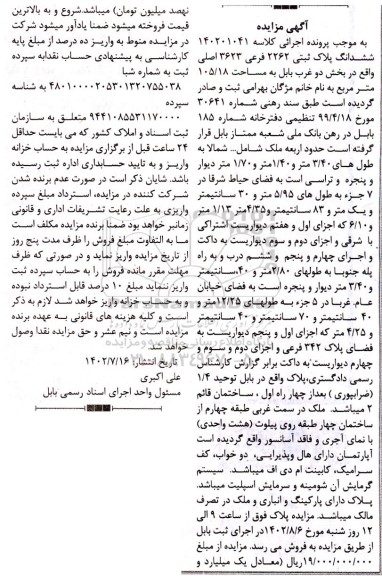 آگهی مزایده
به موجب پرونده اجرائی کلاسه ۱۴۰۲۰۱۰۴۱
ششدانگ پلاک ثبتی ۲۲۶۲ فرعی ۳۶۲۳ اصلی
واقع در بخش دو غرب بابل به مساحت ۱۰۵/۱۸
متر مربع به نام خانم مژگان بهرامی ثبت و صادر
گردیده است طبق سند رهنی شماره ۳۰۶۴۱
مورخ ۹۹/۴/۱۸ تنظیمی دفترخانه شماره ۱۸۵
بابل در رهن بانک ملی شعبه ممتاز بابل قرار
گرفته است حدود اربعه ملک شامل... شمالا به
طول های ۳/۴۰ متر و ۱/۴۰متر و ۱/۷۰ متر دیوار
و پنجره و تراسی است به فضای حیاط شرقا در
۷ جزء به طول های ۵/۹۵ متر و ۳۰ سانتیمتر
و یک متر و ۸۳ سانتیمتر و ۴/۲۵متر ۱/۱۳ متر
و ۶/۱۰ که اجزای اول و هفتم دیواریست اشتراکی
با شرقی و اجزای دوم و سوم دیواریست به داکت
و اجرای چهارم و پنجم و ششم درب و به راه
پله جنوبا به طولهای ۲/۸۰متر و ۴۰سانتیمتر
و ۳/۴۰متر دیوار و پنجره است به فضای خیابان
عام. غربا در ۵ جزء به طولهای ۱۲/۲۵متر و
۴۰ سانتیمتر و ۷۰ سانتیمتر و ۴۰ سانتیمتر
و ۴/۲۵ متر که اجزای اول و پنجم دیواریست به
فضای پلاک ۳۴۲ فرعی و اجزای دوم و سوم و
چهارم دیواریست به داکت برابر گزارش کارشناس
رسمی دادگستری،پلاک واقع در بابل توحید ۱/۴
(ضرابپوری) بعداز چهار راه اول ، ساختمان قائم
۲ میباشد. ملک در سمت غربی طبقه چهارم از
ساختمان چهار طبقه روی پیلوت (هشت واحدی)
با نمای آجری و فاقد آسانسور واقع گردیده است
آپارتمان دارای هال وپذیرایی، دو خواب، کف
سرامیک، کابینت ام دی اف میباشد. سیستم
گرمایش آن شومینه و سرمایش اسپلیت میباشد.
پلاک دارای پارکینگ و انباری و ملک در تصرف
مالک میباشد. مزایده پلاک فوق از ساعت ۹ الی
۱۲ روز شنبه مورخ ۱۴۰۲/۸/۶در اجرای ثبت بابل
از طریق مزایده به فروش می رسد. مزایده از مبلغ
۱۹/۰۰۰/۰۰۰/۰۰۰ریال (معادل یک میلیارد و
نهصد میلیون تومان) میباشد.شروع و به بالاترین
قیمت فروخته میشود ضمنا یادآور میشود شرکت
در مزایده منوط به واریز ده درصد از مبلغ پایه
کارشناسی به پیشنهادی حساب نقدابه سپرده
ثبت به شماره شبا
۴۸۰۱۰۰۰۰۴۰۲۵۰۳۰۱۳۲۰۷۵۵۰۳۸ به شناسه
سپرده
۹۴۴۱۰۸۵۵۳۱۱۷۰۰۰۰ متعلق به سازمان
ثبت اسناد و املاک کشور که می بایست حداقل
۲۴ ساعت قبل از برگزاری مزایده به حساب خزانه
واریز و به تایید حسابداری اداره ثبت رسیده
باشد. شایان ذکر است در صورت عدم برنده شدن
شرکت کننده در مزایده، استرداد مبلغ سپرده
واریزی به علت رعایت تشریفات اداری و قانونی
زمانبر خواهد بود ضمنا برنده مزایده مکلف است
ما به التفاوت مبلغ فروش را ظرف مدت پنج روز
از تاریخ مزایده واریز نماید و در صورتی که ظرف
مهلت مقرر مانده فروش را به حساب سپرده ثبت
واریز ننماید مبلغ ۱۰ درصد قابل استرداد نبوده
و به حساب خزانه واریز خواهد شد لازم به ذکر
است و کلیه هزینه های قانونی به عهده برنده
مزایده است و نیم عشر و حق مزایده نقدا وصول
خواهد شد.
تاریخ انتشار: ۱۴۰۲/۷/۱۶
علی اکبری
مسئول واحد اجرای اسناد رسمی بابل